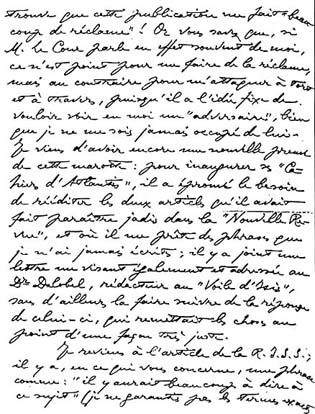 trouve que cette publication me fait "beau-
coup de réclame"! Or vous savez que, si
M. le Cour parle en effet souvent de moi,
ce n'est point pour me faire de la réclame,
mais au contraire pour m'attaquer à tort
et à travers, puisqu'il a l'idée fixe de
vouloir voir en moi un "adversaire", bien
que je ne me sois jamais occupé de lui.
Je viens d'avoir encore une nouvelle preuve
de cette marotte: pour inaugurer ses "Ca-
hiers d'Atlantis", il a éprouvé le besoin
de rééditer les deux articles qu'il avait
fait paraître jadis dans la "Nouvelle Re-
vue", et où il me prête des phrases que
je n'ai jamais écrites; il y a joint une
lettre me visant également et adressée au
Dr Delobel, rédacteur au "Voile d'Isis",
sans d'ailleurs la faire suivre de la réponse
de celui-ci, qui remettait les choses au
point d'une façon très juste.
Je reviens à l'article de la R.I.S.S.;
il y a, en ce qui vous concerne, une phrase
comme: "il y aurait beaucoup à dire à
ce sujet" (je ne garantis pas les termes exacts